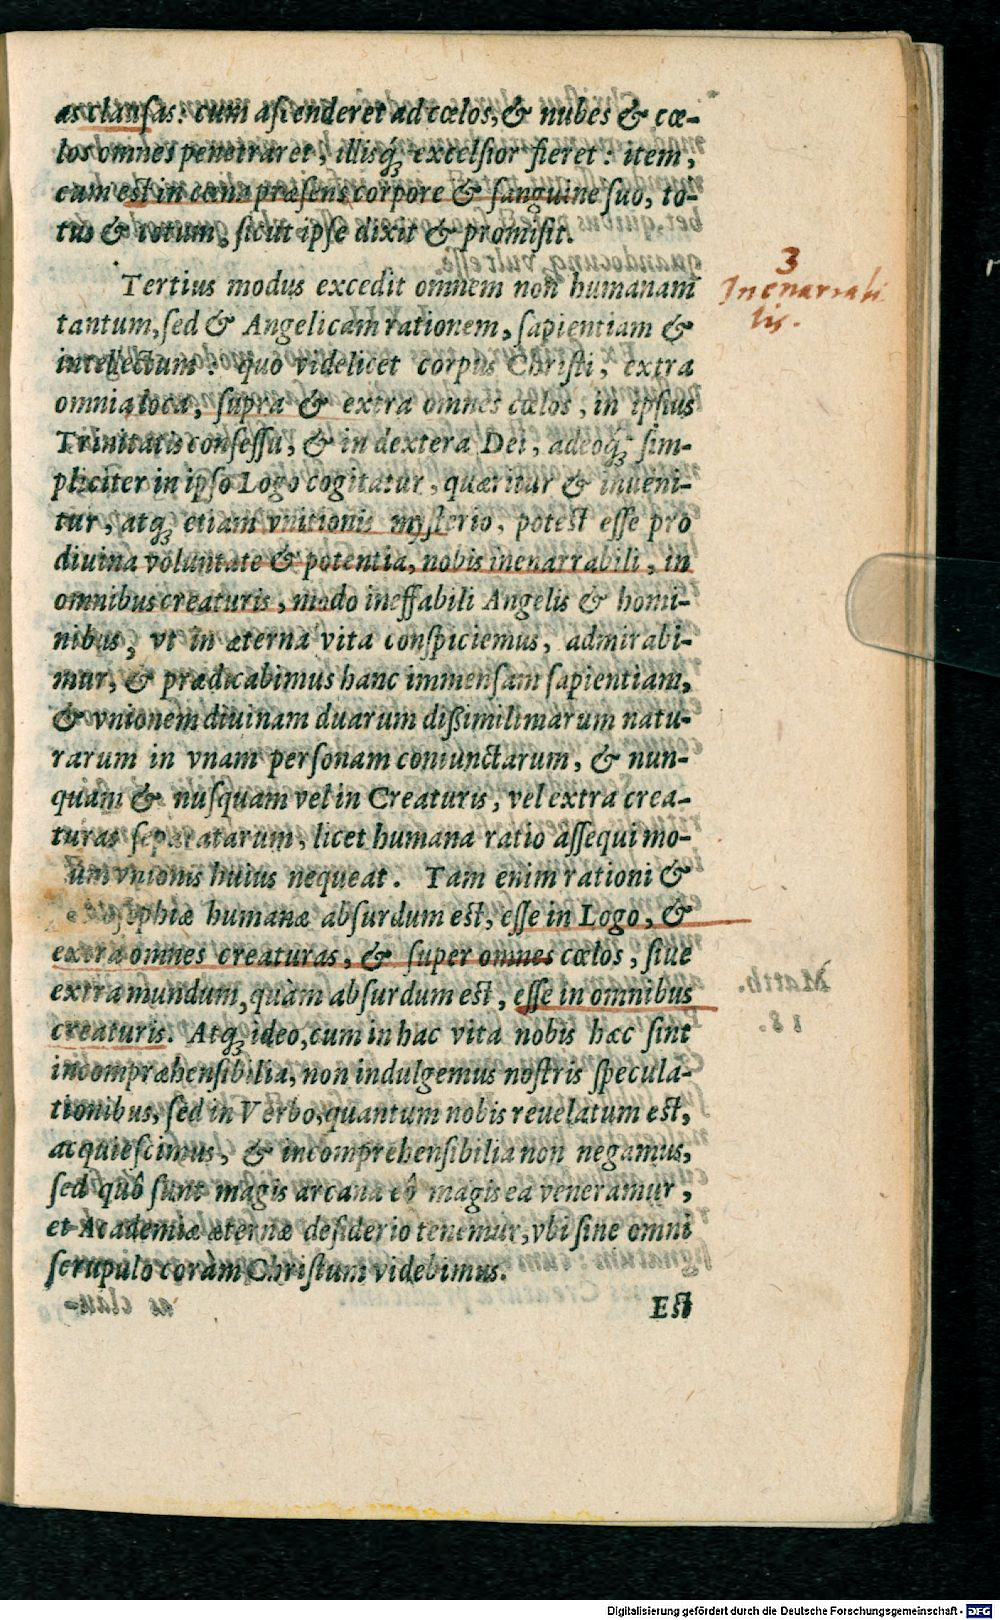 as clauſas: cum aſcenderet ad cœlos, & nubes & cœ-
los omnes penetraret, illisq́; excelſior fieret: item,
cum eſt in cœna præſens corpore & ſanguine ſuo, to-
tus & totum, ſicut ipſe dixit & promiſit.
Tertius modus excedit omnem non humanam
tantum, ſed & Angelicam rationem, ſapientiam &
intellectum: quo videlicet corpus Chriſti, extra
omnia loca, ſupra & extra omnes cœlos, in ipſius
Trinitatis conſeſſu, & in dextera Dei, adeoq́; ſim-
pliciter in ipſo Logo cogitatur, quæritur & inueni-
tur, atq; etiam vnitionis myſterio, poteſt eſſe pro
diuina voluntate & potentia, nobis inenarrabili, in
omnibus creaturis, modo ineffabili Angelis & homi-
nibus, vt in æterna vita conſpiciemus, admirabi-
mur, & prædicabimus hanc immenſam ſapientiam,
& vnionem diuinam duarum dißimilimarum natu-
rarum in vnam perſonam coniunctarum, & nun-
quàm & nuſquam vel in Creaturis, vel extra crea-
turas ſeparatarum, licet humana ratio aſſequi mo-
um vnionis huius nequeat. Tam enim rationi &
ſophiæ humanæ abſurdum eſt, eſſe in Logo, &
extra omnes creaturas, & ſuper omnes cœlos, ſiue
extra mundum, quàm abſurdum eſt, eſſe in omnibus
creaturis. Atq; ideo, cum in hac vita nobis hæc ſint
incompræhenſibilia, non indulgemus noſtris ſpecula-
tionibus, ſed in Verbo, quantum nobis reuelatum eſt,
acquieſcimus, & incomprehenſibilia non negamus,
ſed quô ſunt magis arcana eô magis ea veneramur,
et Academiæ æternæ deſiderio tenemur, vbi ſine omni
ſcrupulo coràm Chriſtum videbimus.
Eſt
3
Inenarrabi
lis.
Digitalisierung gefördert durch die Deutsche Forschungsgemeinschaft - DFG